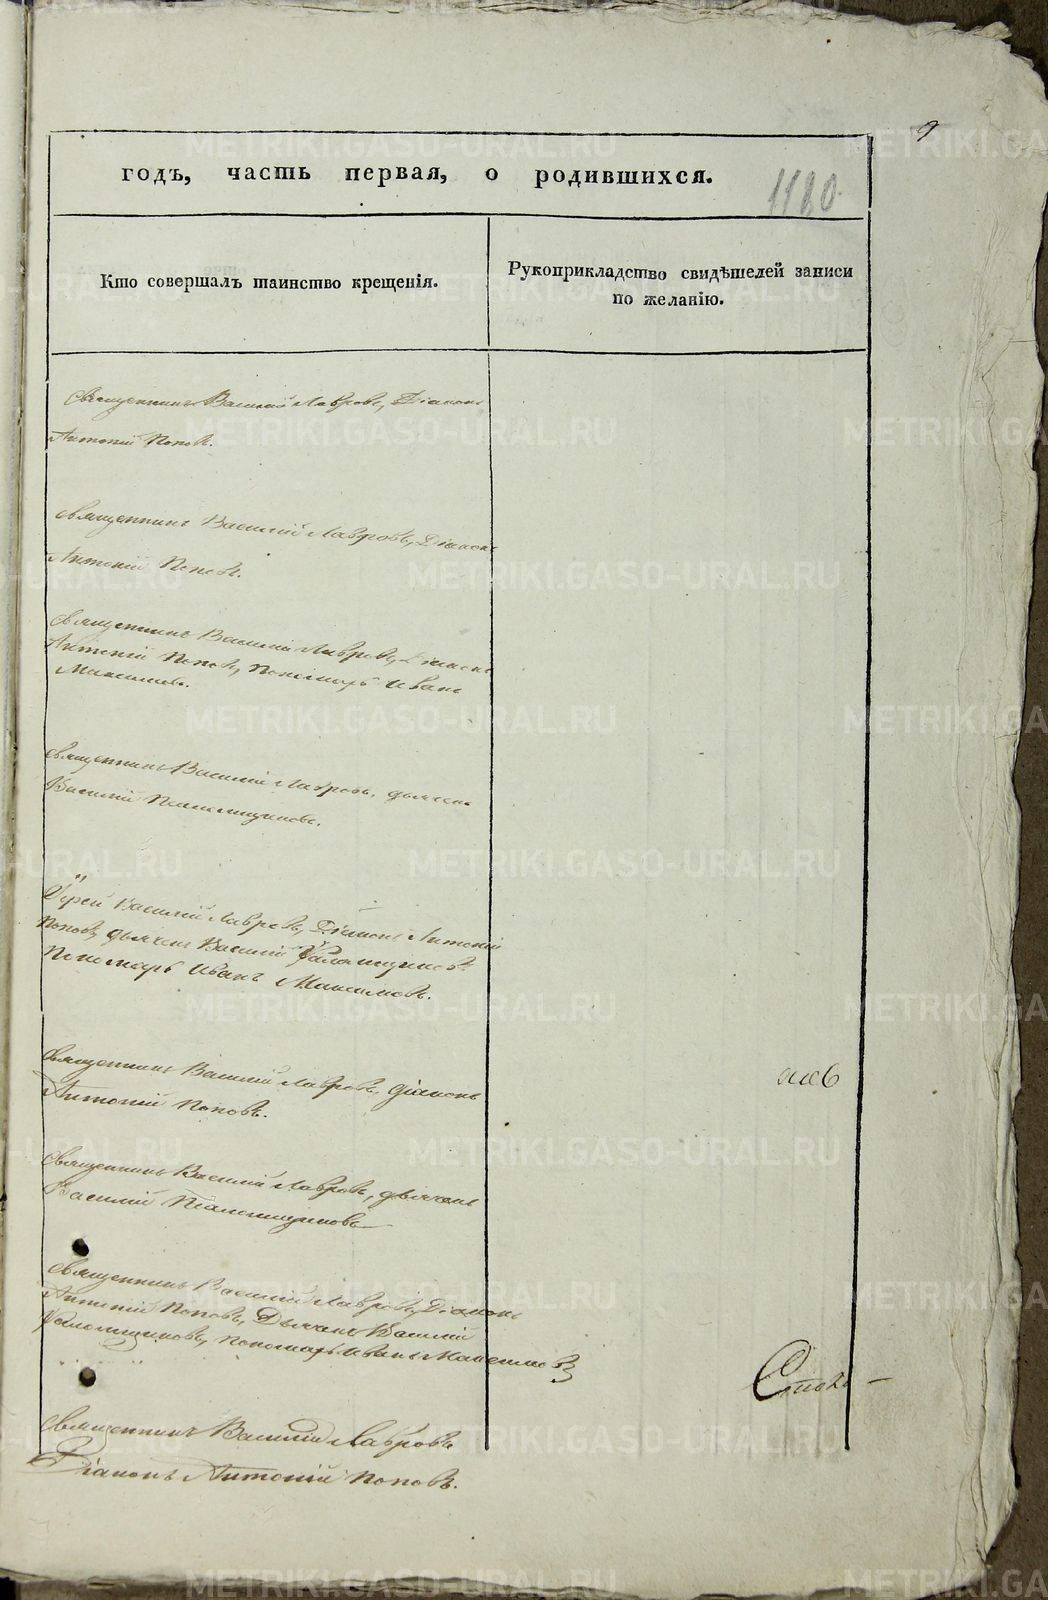 9
годъ, часть первая, о родившихся.
1180.
Кто совершалъ таинство крещенія.
Рукоприкладство свидѣтелей записи
по желанію.
Священникъ Василій Лавровъ, Діаконъ
Антоній Поповъ.
Священникъ Василій Лавровъ, Діаконъ
Антоній Поповъ.
Священникъ Василій Лавровъ, Діаконъ
Антоній Поповъ, Пономарь Иванъ
Максимовъ.
Священникъ Василій Лавровъ, дьячекъ
Василій
Іерей Василій Лавровъ, Діаконъ Антоній
Поповъ, дьячекъ Василій
Пономарь Иванъ Максимовъ.
Священникъ Василій Лавровъ, діаконъ
Антоній Поповъ.
Священникъ Василій Лавровъ, дьячекъ
Василій
Священникъ Василій Лавровъ, Діаконъ
Антоній Поповъ, Дьячекъ Василій
пономарь Иванъ Максимовъ
Священникъ Василій Лавровъ
Діаконъ Антоній Поповъ.
METRIKI.GASO-URAL.RU